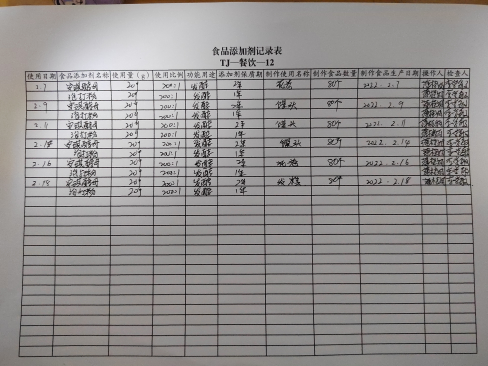 食品添加剂记录表
TJ—餐饮—12
使用日期 食品添加剂名称 使用量（g） 使用比例 功能用途 添加剂保质期 制作使用名称 制作食品数量 制作食品生产日期 操作人 检查人
2.7 安琪酵母 20g 200:1 发酵 2年 花卷 80个 2022.2.7
泡打粉 20g 200:1 发酵 1年
2.9 安琪酵母 20g 200:1 发酵 2年 馒头 80个 2022.2.9
泡打粉 20g 200:1 发酵 1年
2.11 安琪酵母 20g 200:1 发酵 2年 馒头 80个 2022.2.11
泡打粉 20g 200:1 发酵 1年
2.14 安琪酵母 20g 200:1 发酵 2年 馒头 80个 2022.2.14
泡打粉 20g 200:1 发酵 1年
2.16 安琪酵母 20g 200:1 发酵 2年 80个 2022.2.16
泡打粉 20g 200:1 发酵 1年
2.18 安琪酵母 20g 200:1 发酵 2年 80个 2022.2.18
泡打粉 20g 200:1 发酵 1年